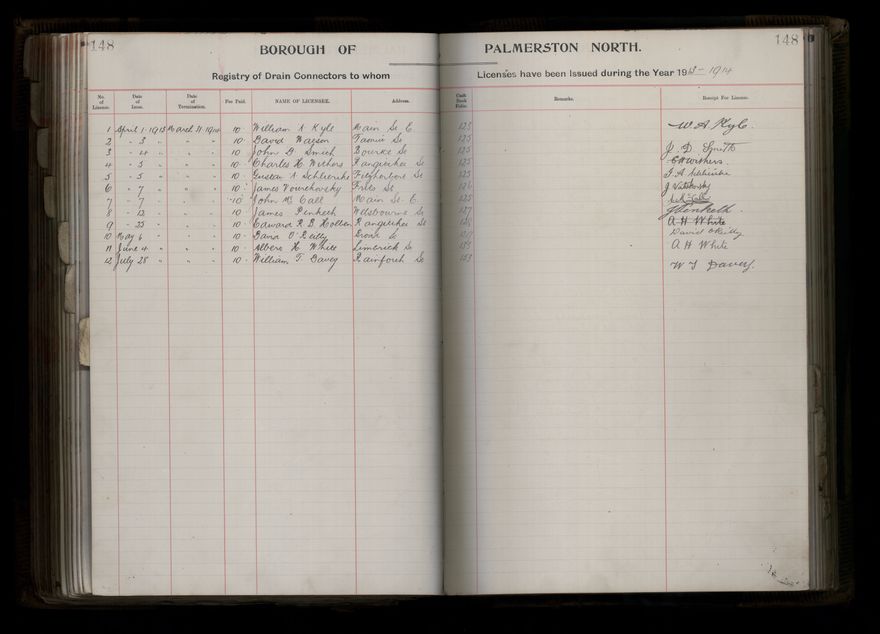 148
148
BOROUGH OF PALMERSTON NORTH.
Registry of Drain Connectors to whom Licenses have been Issued during the Year 1913-1914
No. of License. Date of Issue. Date of Termination. Fee Paid. NAME OF LICENSEE. Address. Cash Book Folio. Remarks. Receipt For License.
1 April 1 1913 March 31 1914 10 William A Kyle Main St E. 123 W. A. Kyle.
2 " 3 " " " 10 David Watson St 125
3 " 4 " " " 10 John D Smith Bourke St 125 J. D. Smith
4 " 5 " " " 10 Charles H Withers Rangitikei St 125 C H Withers.
5 " 5 " " " 10 Gustav A Schlienske Fitzherbert St 125
6 " 7 " " " 10 James St 126
7 " 7 " " " 10 John Mc Call Main St. E
8 " 12 " " " 10 James Penketh St 127 J Penketh.
9 " 22 " " " 10 Edward R. B. Holben Rangitikei St A H White
10 May 6 " " " 10 David O'Reilly Grove St David O'Reilly
11 June 4 " " " 10 Albert H White Limerick St A H White
12 July 28 " " " 10 William T Davey Rainforth St 153 W T Davey.